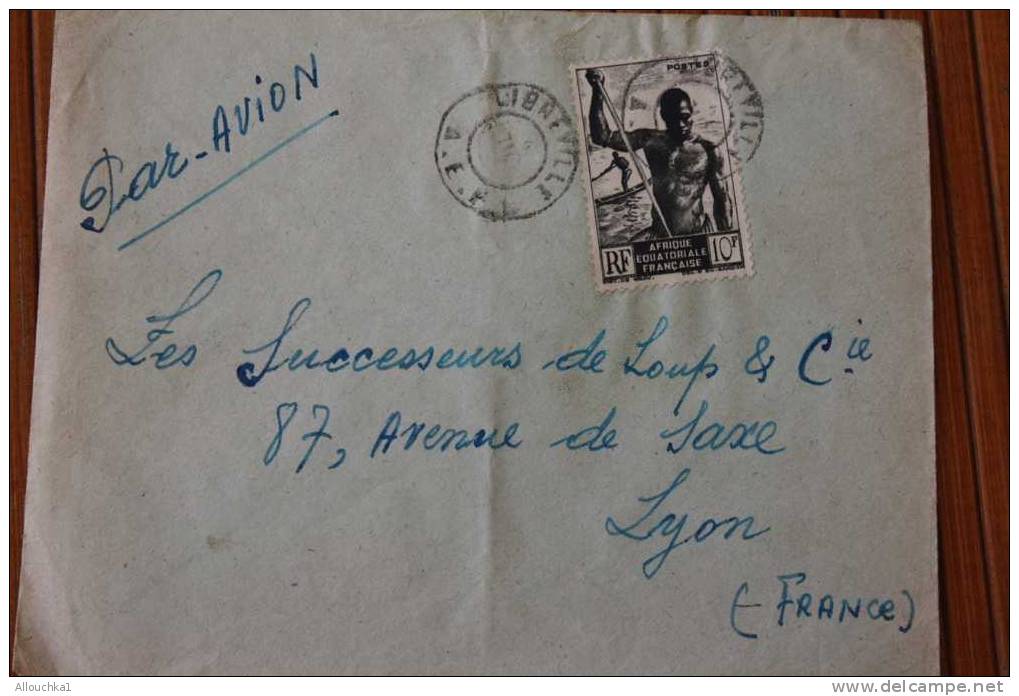 Par-AVION
LIBREVILLE
A.E.F
POSTES
RF
AFRIQUE
EQUATORIALE
FRANÇAISE
10F
Les Successeurs de Loup & Cie
87, Avenue de Saxe
Lyon
(- FRANCE)
Allouchka1
www.delcampe.net